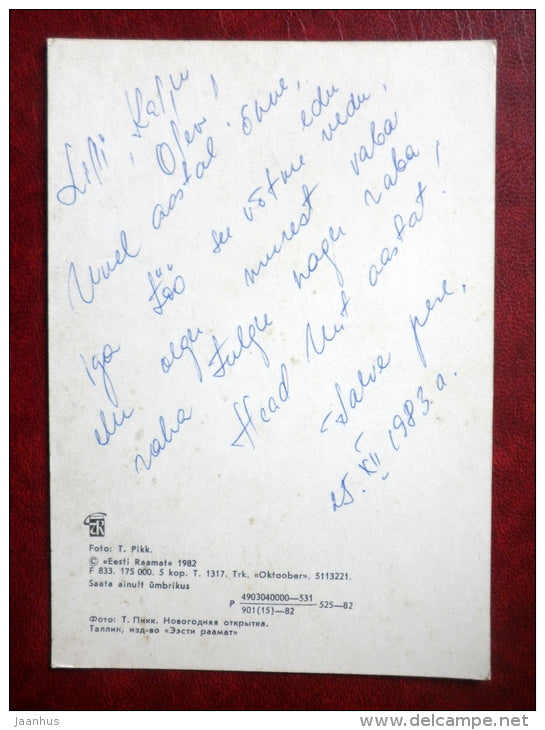 Lilli, Kalju
Olev,
Uuel aastal õnne, edu
iga töö see võtme vedu,
elu olgu murest vaba
raha tulgu nagu raba,
Head Uut aastat.
Salve pere,
25. XII 1983. a.
Foto: T. Pikk.
© «Eesti Raamat» 1982
F 833. 175 000. 5 kop. T. 1317. Trk. «Oktoober». 5113221.
Saata ainult ümbrikus
Р 4903040000—531
901(15)—82 525—82
Фото: Т. Пикк. Новогодняя открытка.
Таллин, изд-во «Ээсти раамат»
jaanhus
www.delcampe.net